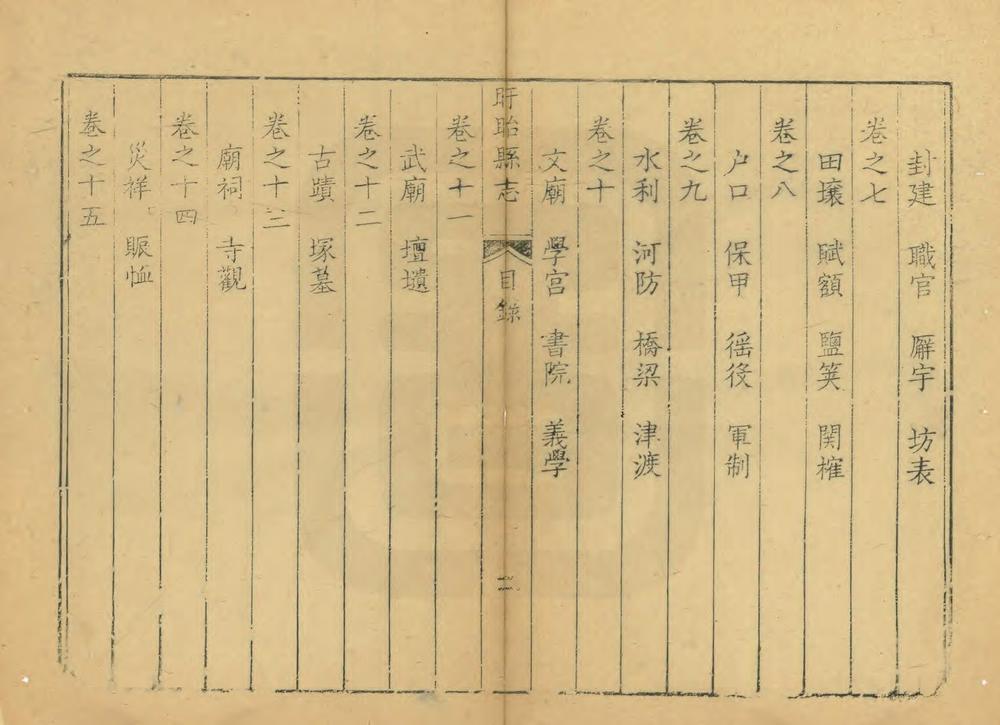 封建 職官 廨宇 坊表
卷之七
田壤 賦額 鹽筴 関榷
卷之八
户口 保甲 徭役 軍制
卷之九
水利 河防 橋梁 津渡
卷之十
文廟 學宫 書院 義學
盱眙縣志 目錄 二
卷之十一
武廟 壇壝
卷之十二
古蹟 塚墓
卷之十三
廟祠 寺觀
卷之十四
災祥 賑恤
卷之十五